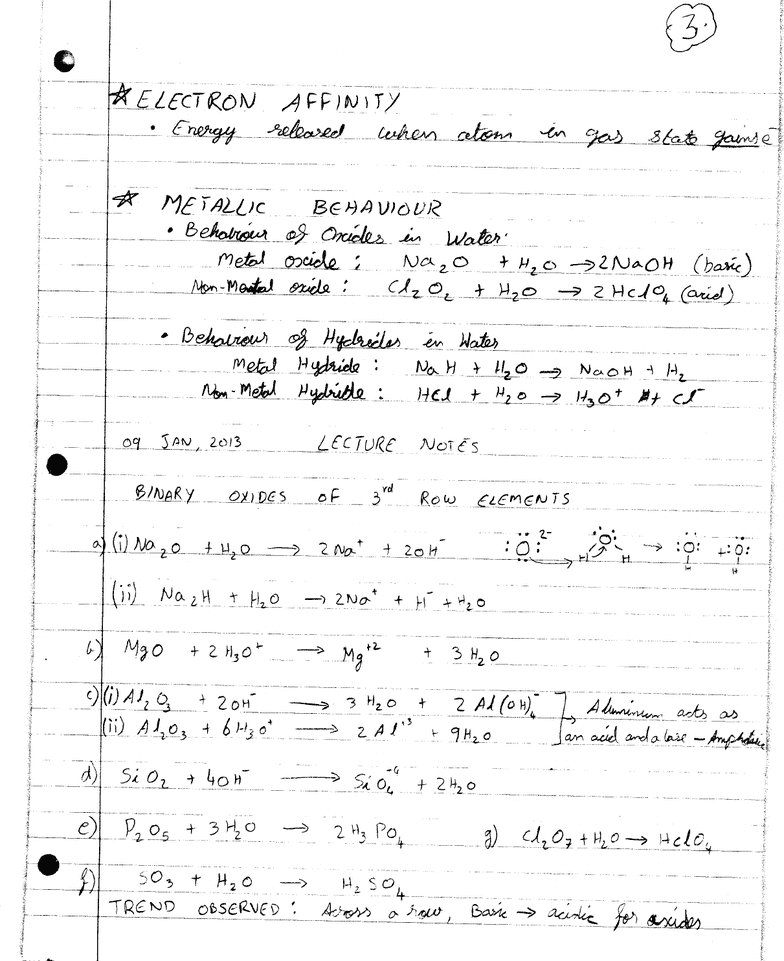 3
☆ ELECTRON AFFINITY
• Energy released when atom in gas state gains e
☆ METALLIC BEHAVIOUR
• Behaviour of Oxides in Water:
Metal oxide : Na₂O + H₂O → 2NaOH (basic)
Non-Metal oxide : Cl₂O₂ + H₂O → 2HClO₄ (acid)
• Behaviour of Hydrides in Water
Metal Hydride : NaH + H₂O → NaOH + H₂
Non-Metal Hydride : HCl + H₂O → H₃O⁺ + Cl⁻
09 JAN, 2013 LECTURE NOTES
BINARY OXIDES OF 3rd ROW ELEMENTS
a) (i) Na₂O + H₂O → 2Na⁺ + 2OH⁻ :O:²⁻ H O H → :O: H + :O: H
(ii) Na₂H + H₂O → 2Na⁺ + H⁻ + H₂O
b) MgO + 2H₃O⁺ → Mg⁺² + 3H₂O
c) (i) Al₂O₃ + 2OH⁻ → 3H₂O + 2Al(OH)₄⁻ → Aluminum acts as
(ii) Al₂O₃ + 6H₃O⁺ → 2Al⁺³ + 9H₂O an acid and a base – Amphoteric
d) SiO₂ + 4OH⁻ → SiO₄⁻⁴ + 2H₂O
e) P₂O₅ + 3H₂O → 2H₃PO₄ g) Cl₂O₇ + H₂O → HClO₄
f) SO₃ + H₂O → H₂SO₄
TREND OBSERVED : Across a row, Basic → acidic for oxides